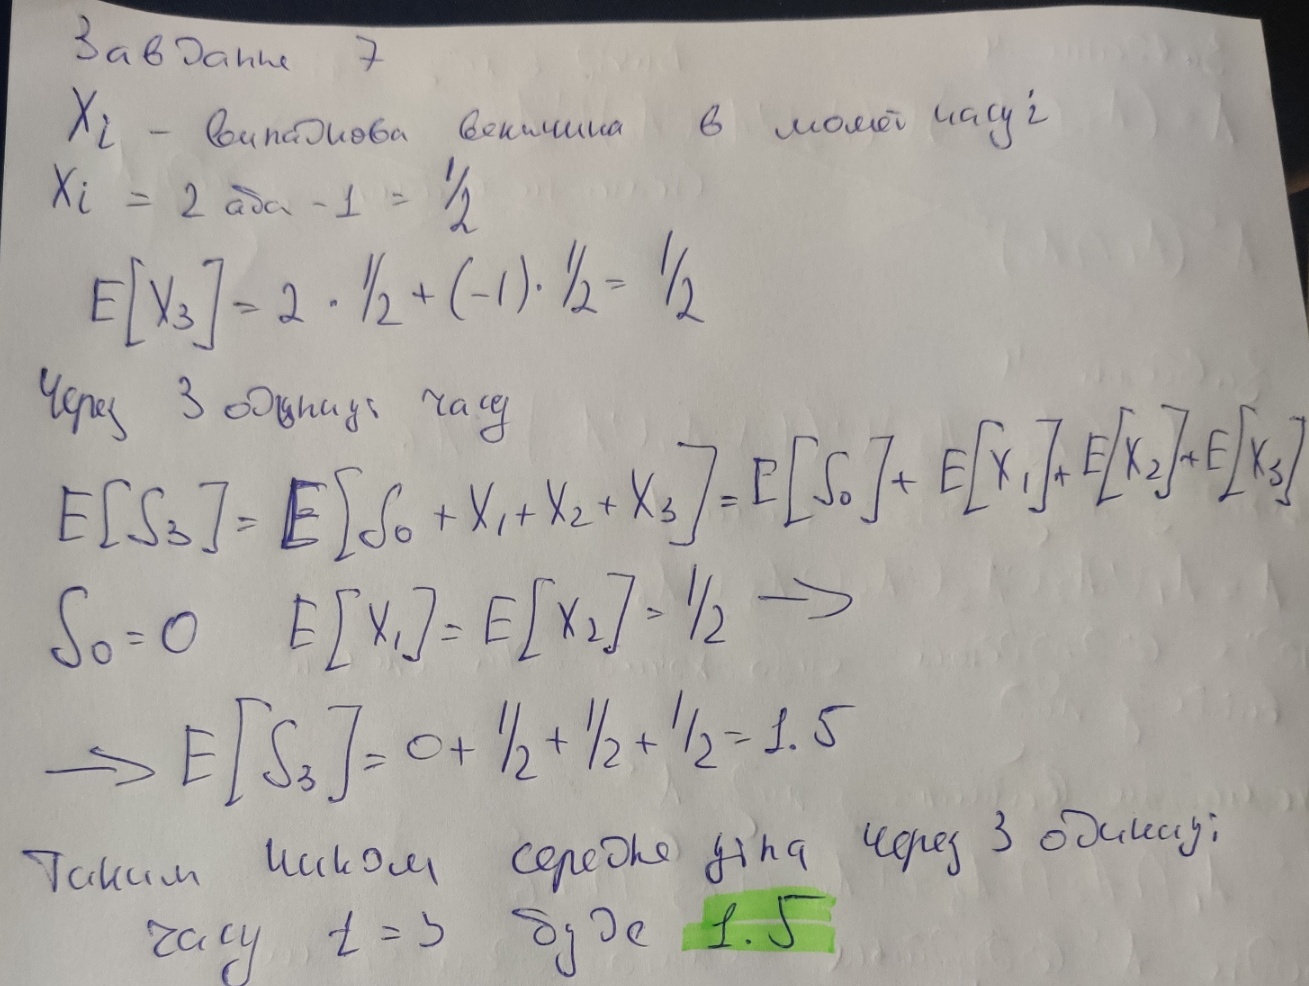 Завдання 7
Xi - випадкова величина в момен часу i
Xi = 2 або -1 = 1/2
E[X3] = 2 · 1/2 + (-1) · 1/2 = 1/2
Через 3 одиниці часу
E[S3] = E[S0 + X1 + X2 + X3] = E[S0] + E[X1] + E[X2] + E[X3]
S0 = 0 E[X1] = E[X2] = 1/2 →
→ E[S3] = 0 + 1/2 + 1/2 + 1/2 = 1.5
Таким чином середнє ціна через 3 одиниці
часу t = 3 буде 1.5